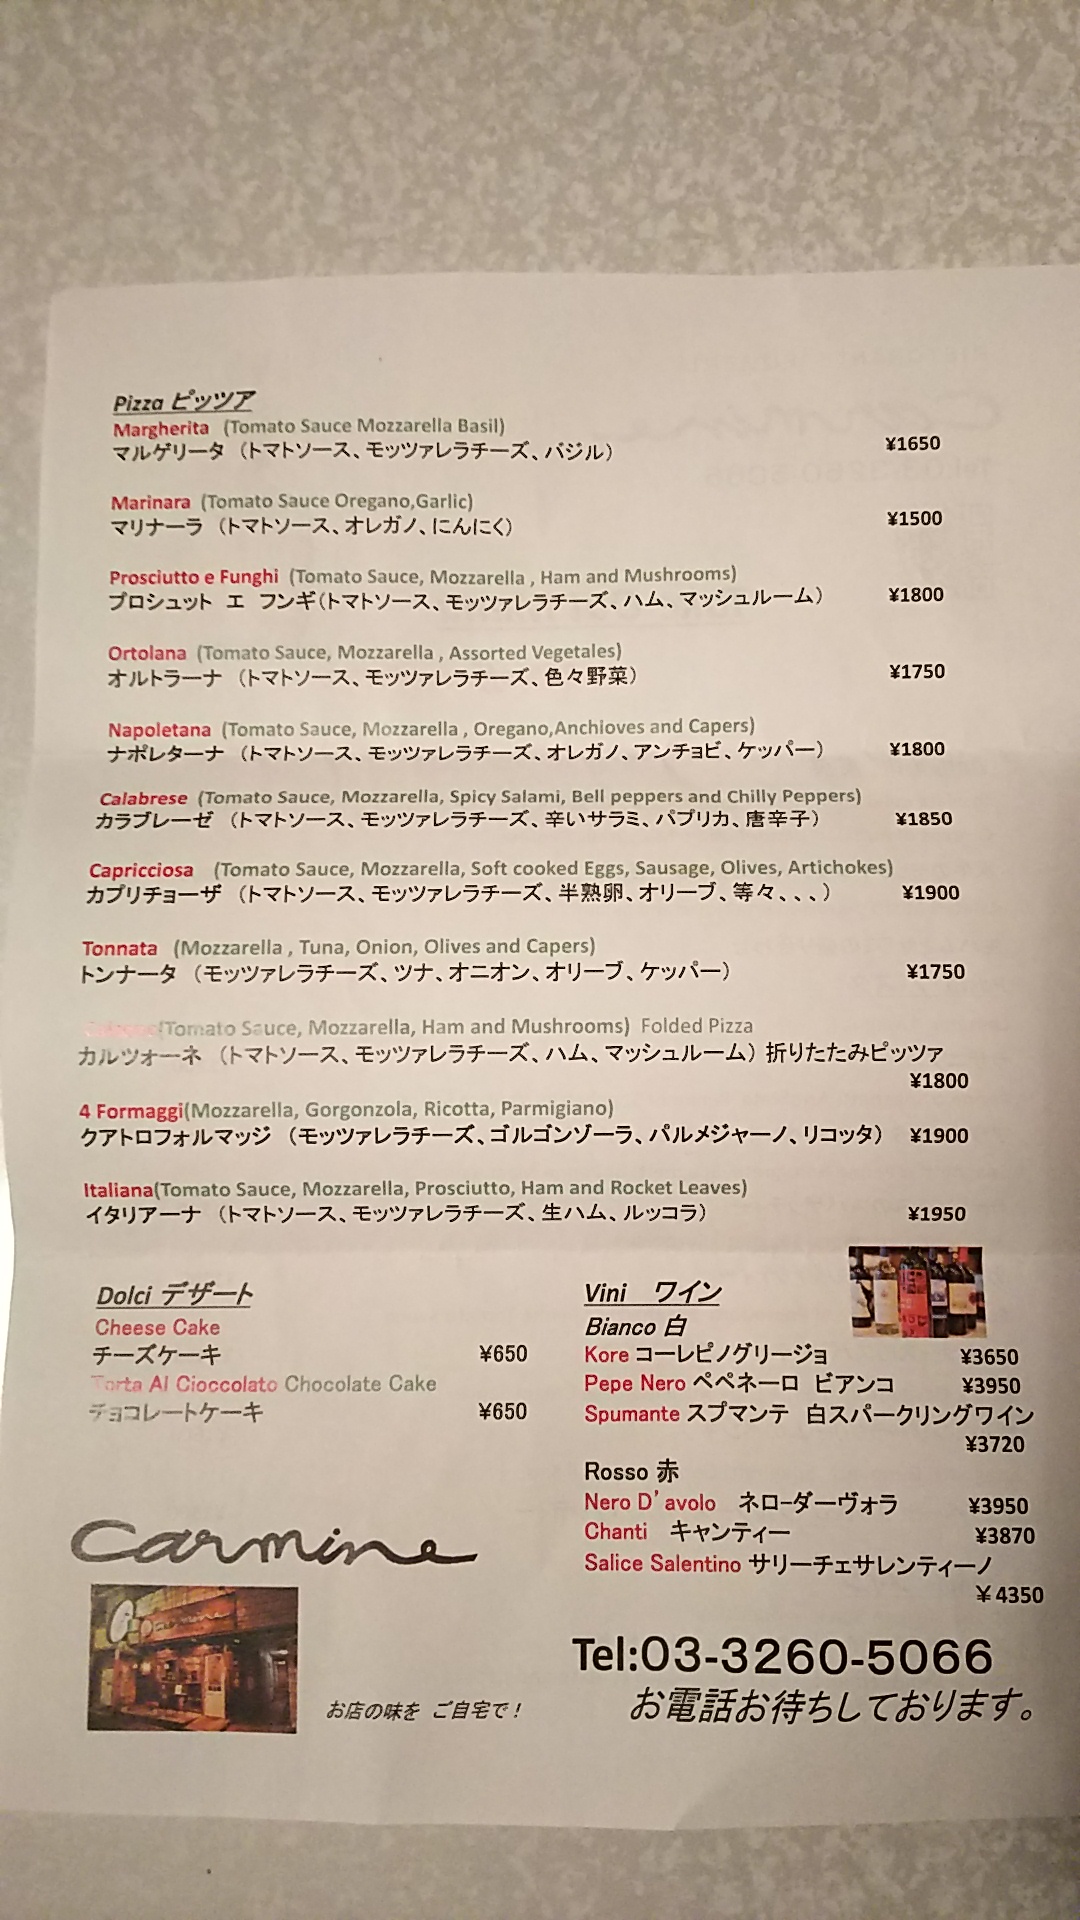 Pizza ピッツア
Margherita (Tomato Sauce Mozzarella Basil)
マルゲリータ （トマトソース、モッツァレラチーズ、バジル） ¥1650
Marinara (Tomato Sauce Oregano,Garlic)
マリナーラ （トマトソース、オレガノ、にんにく） ¥1500
Prosciutto e Funghi (Tomato Sauce, Mozzarella , Ham and Mushrooms)
プロシュット エ フンギ（トマトソース、モッツァレラチーズ、ハム、マッシュルーム） ¥1800
Ortolana (Tomato Sauce, Mozzarella , Assorted Vegetales)
オルトラーナ （トマトソース、モッツァレラチーズ、色々野菜） ¥1750
Napoletana (Tomato Sauce, Mozzarella , Oregano,Anchioves and Capers)
ナポレターナ （トマトソース、モッツァレラチーズ、オレガノ、アンチョビ、ケッパー） ¥1800
Calabrese (Tomato Sauce, Mozzarella, Spicy Salami, Bell peppers and Chilly Peppers)
カラブレーゼ （トマトソース、モッツァレラチーズ、辛いサラミ、パプリカ、唐辛子） ¥1850
Capricciosa (Tomato Sauce, Mozzarella, Soft cooked Eggs, Sausage, Olives, Artichokes)
カプリチョーザ （トマトソース、モッツァレラチーズ、半熟卵、オリーブ、等々、、、） ¥1900
Tonnata (Mozzarella , Tuna, Onion, Olives and Capers)
トンナータ （モッツァレラチーズ、ツナ、オニオン、オリーブ、ケッパー） ¥1750
(Tomato Sauce, Mozzarella, Ham and Mushrooms) Folded Pizza
カルツォーネ （トマトソース、モッツァレラチーズ、ハム、マッシュルーム）折りたたみピッツァ
¥1800
4 Formaggi(Mozzarella, Gorgonzola, Ricotta, Parmigiano)
クアトロフォルマッジ （モッツァレラチーズ、ゴルゴンゾーラ、パルメジャーノ、リコッタ） ¥1900
Italiana(Tomato Sauce, Mozzarella, Prosciutto, Ham and Rocket Leaves)
イタリアーナ （トマトソース、モッツァレラチーズ、生ハム、ルッコラ） ¥1950
Dolci デザート
Cheese Cake
チーズケーキ ¥650
Torta Al Cioccolato Chocolate Cake
チョコレートケーキ ¥650
Vini ワイン
Bianco 白
Kore コーレピノグリージョ ¥3650
Pepe Nero ペペネーロ ビアンコ ¥3950
Spumante スプマンテ 白スパークリングワイン
¥3720
Rosso 赤
Nero D'avolo ネロ-ダーヴォラ ¥3950
Chanti キャンティー ¥3870
Salice Salentino サリーチェサレンティーノ
¥4350
Carmine
Carmine
お店の味を ご自宅で！
Tel:03-3260-5066
お電話お待ちしております。